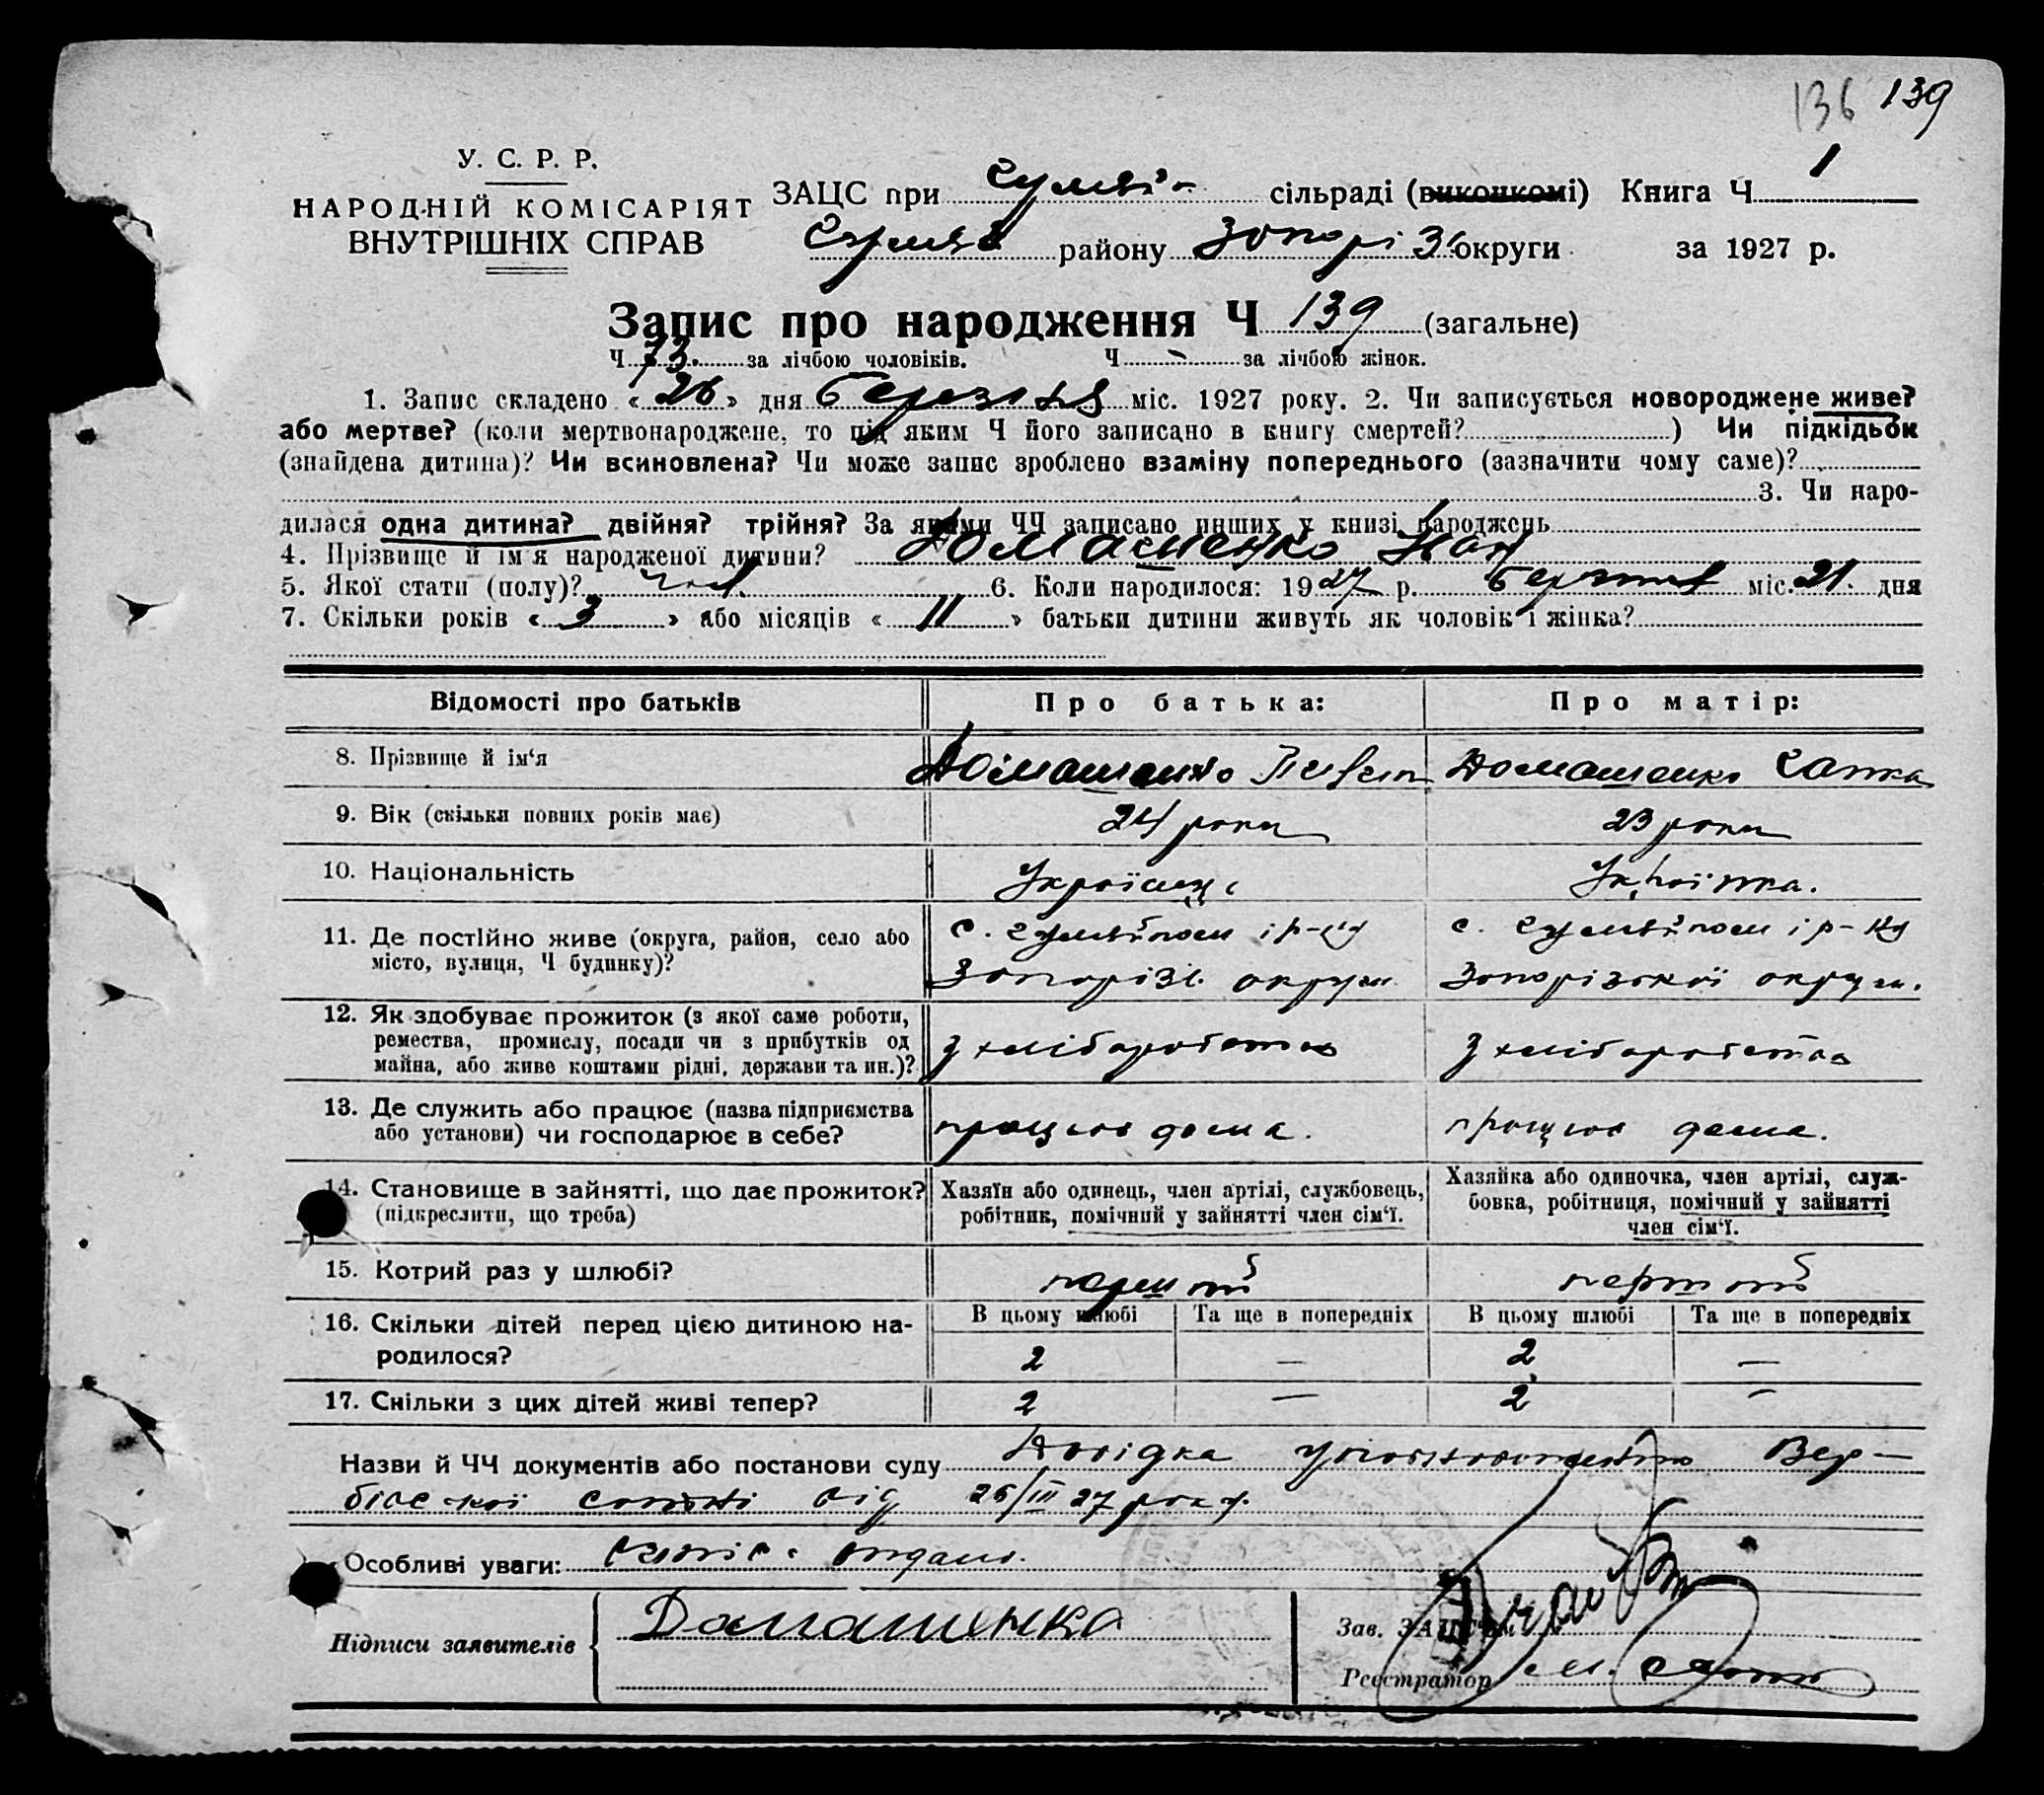 136 139
У. С. Р. Р.
НАРОДНІЙ КОМІСАРІЯТ
ВНУТРІШНІХ СПРАВ
ЗАЦС при сільраді (виконкомі) Книга Ч 1
району Запоріз округи за 1927 р.
Запис про народження Ч 139 (загальне)
Ч 73. за лічбою чоловіків. Ч - за лічбою жінок.
1. Запис складено «26» дня березня міс. 1927 року. 2. Чи записується новороджене живе?
або мертве? (коли мертвонароджене, то під яким Ч його записано в книгу смертей?) Чи підкідьок
(знайдена дитина)? Чи всиновлена? Чи може запис зроблено взаміну попереднього (зазначити чому саме)?
3. Чи наро-
дилася одна дитина? двійня? трійня? За якими ЧЧ записано инших у книзі народжень
4. Прізвище й ім'я народженої дитини? Домашенко Іван
5. Якої стати (полу)? чол. 6. Коли народилося: 1927 р. березня міс. 21. дня
7. Скільки років «3» або місяців «11» батьки дитини живуть як чоловік і жінка?
Відомості про батьків Про батька: Про матір:
8. Прізвище й ім'я Домашенко Домашенко
9. Вік (скільки повних років має) 24 роки 23 роки
10. Національність Українець Українка.
11. Де постійно живе (округа, район, село або
місто, вулиця, Ч будинку)?
с. і р-ну с. і р-ну
Запорізь. округи Запорізької округи.
12. Як здобуває прожиток (з якої саме роботи,
ремества, промислу, посади чи з прибутків од
майна, або живе коштами рідні, держави та ин.)?
З хліборобства З хліборобства
13. Де служить або працює (назва підприємства
або установи) чи господарює в себе?
працює дома. працює дома.
14. Становище в зайнятті, що дає прожиток?
(підкреслити, що треба)
Хазяїн або одинець, член артілі, службовець,
робітник, помічний у зайнятті член сім'ї.
Хазяйка або одиночка, член артілі, служ-
бовка, робітниця, помічний у зайнятті
член сім'ї.
15. Котрий раз у шлюбі? перший перший
16. Скільки дітей перед цією дитиною на-
родилося?
В цьому шлюбі Та ще в попередніх В цьому шлюбі Та ще в попередніх
2 — 2 —
17. Скільки з цих дітей живі тепер? 2 — 2 -
Назви й ЧЧ документів або постанови суду Довідка Вер-
сотні від 26/III 27 року.
Особливі уваги:
Підписи заявителів Дамашенка
Зав. ЗАЦС'ом
Реєстратор